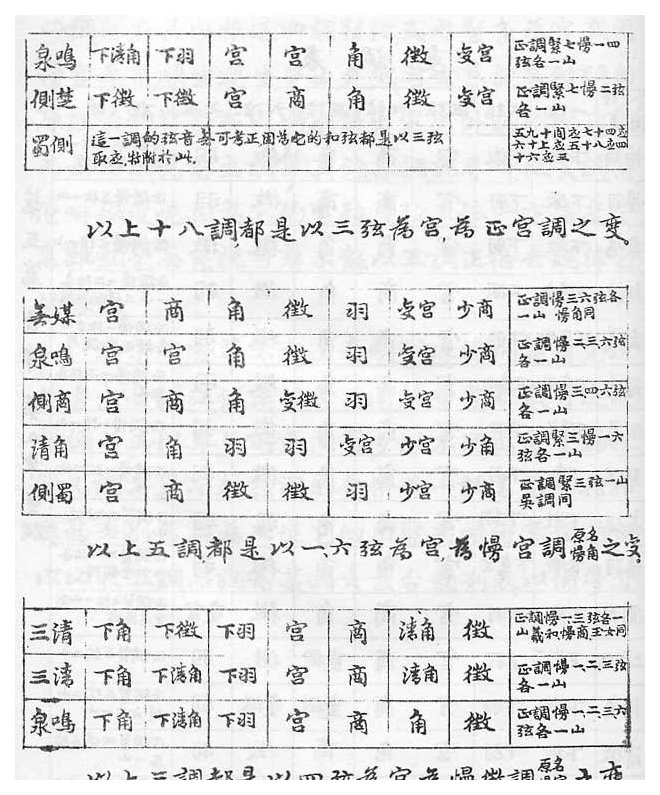 泉鳴 下清角 下羽 宮 宮 角 徵 变宮 正調緊七慢一四
弦各一山
側楚 下徵 下徵 宮 商 角 徵 变宮 正調緊七慢二弦
各一山
蜀側 這一調的弦音甚可考正因為它的和弦都是以三弦
取应,特附於此.
以上十八調,都是以三弦為宮,為正宮調之变.
無媒 宮 商 角 徵 羽 变宮 少商 正調慢三六弦各
一山 慢角同
泉鳴 宮 宮 角 徵 羽 变宮 少商 正調慢二、三、六弦
各一山
側商 宮 商 角 变徵 羽 变宮 少商 正調慢三、四、六弦
各一山
清角 宮 角 羽 羽 变宮 少宮 少角 正調緊三慢一六
弦各一山
側蜀 宮 商 徵 徵 羽 少宮 少商 正調緊三弦一山
吳調同
以上五調,都是以一、六弦為宮,為慢宮調原名慢角之变.
三清 下角 下徵 下羽 宮 商 清角 徵 正調慢一、三弦各一
山 羲和、慢商、玉女同
三清 下角 下清角 下羽 宮 商 清角 徵 正調慢一、二、三弦
各一山
泉鳴 下角 下清角 下羽 宮 商 角 徵 正調慢一、二、三、六
弦各一山
以上三調都是以四弦為宮為慢徵調原名